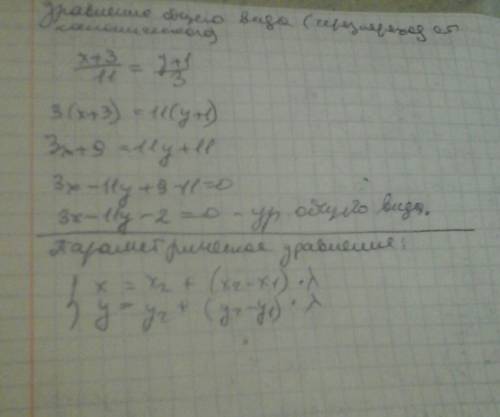 уравнение общего вида (через переход от
канонического
x+3/11 = y+1/3
3(x+3) = 11(y+1)
3x+9 = 11y+11
3x-11y+9-11=0
3x-11y-2=0 - ур. общего вида.
Параметрическое уравнение:
{ x = x₂ + (x₂-x₁)·λ
y = y₂ + (y₂-y₁)·λ